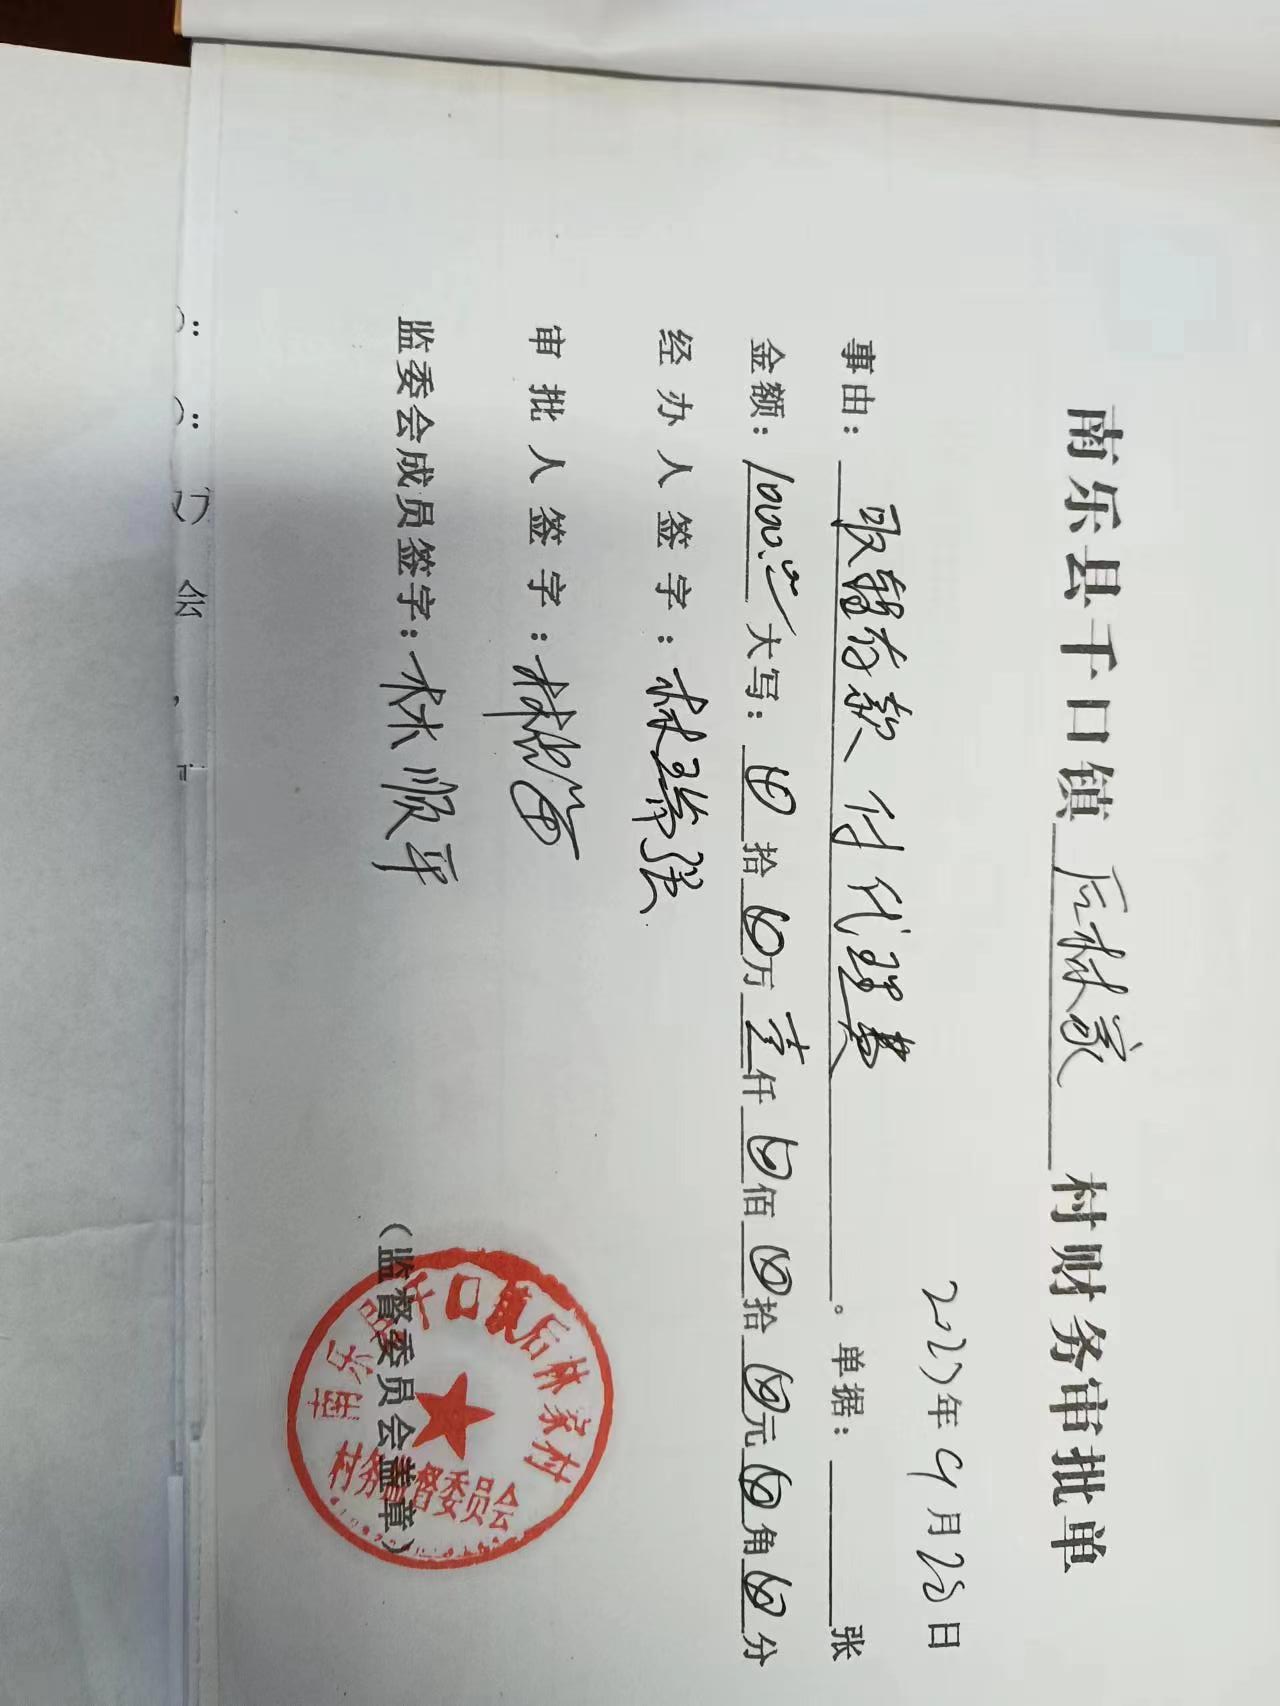 南乐县千口镇后林家村财务审批单
2023年9月28日
事由：取银行存款 付代理费。单据： 张
金额：1000.00 大写：⊗拾⊗万壹仟⊗佰⊗拾⊗元⊗角⊗分
经办人签字：林瑞强
审批人签字：林
监委会成员签字：林顺平
（监督委员会盖章）
南乐县千口镇后林家村
村务监督委员会